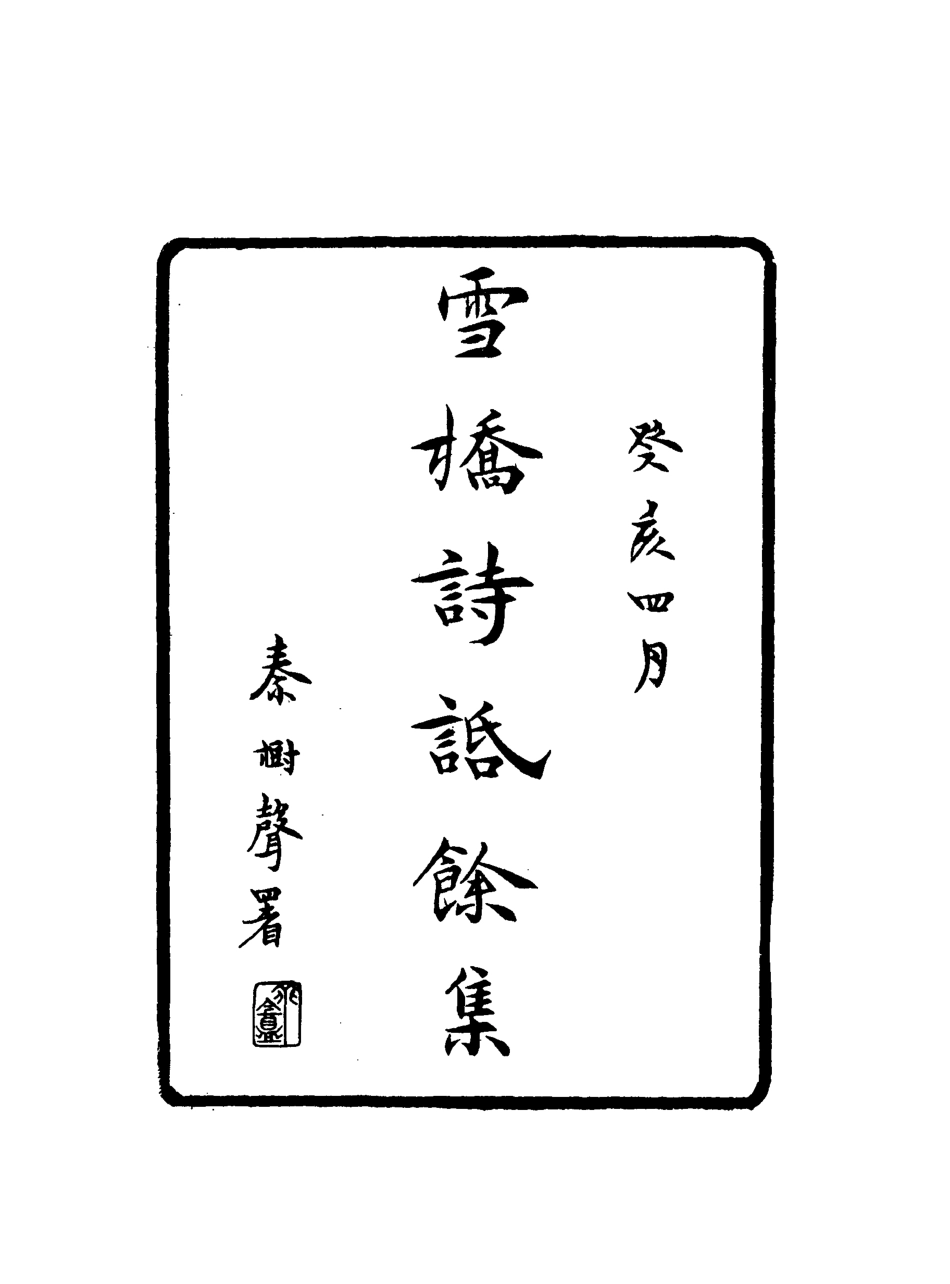 癸亥四月
雪橋詩話餘集
秦樹聲署